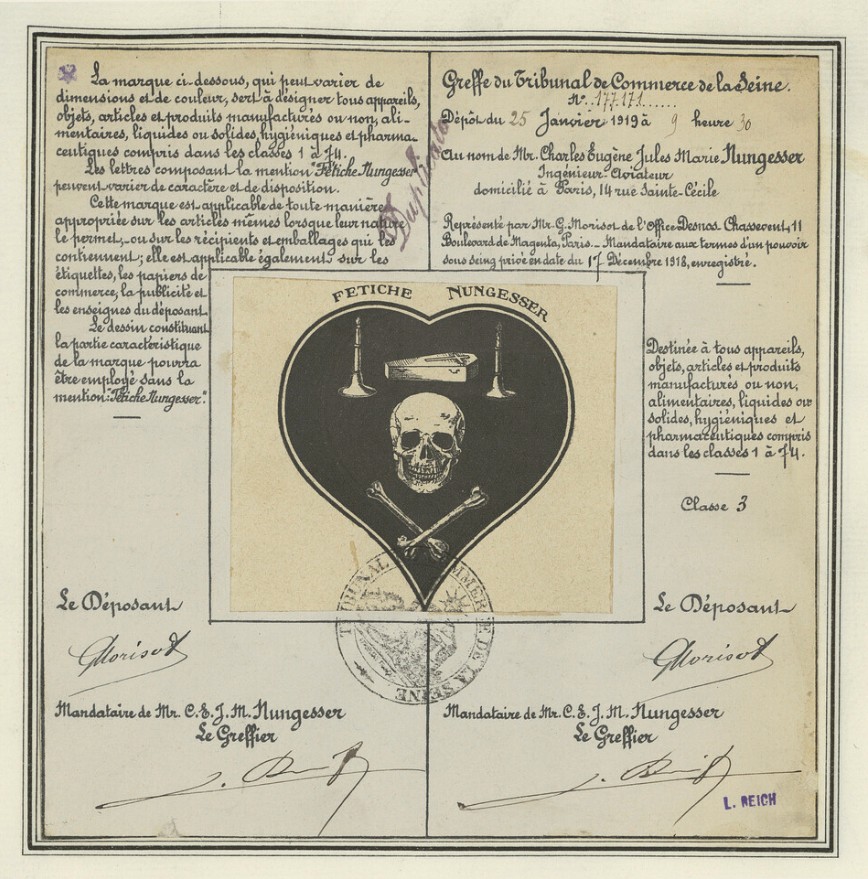 La marque ci-dessous, qui peut varier de
dimensions et de couleur, sert à désigner tous appareils,
objets, articles et produits manufacturés ou non, ali-
mentaires, liquides ou solides, hygiéniques et pharma-
ceutiques compris dans les classes 1 à 74.
Les lettres composant la mention "Fétiche Nungesser"
peuvent varier de caractère et de disposition.
Cette marque est applicable de toute manière
appropriée sur les articles mêmes lorsque leur nature
le permet, ou sur les récipients et emballages qui les
contiennent; elle est applicable également sur les
étiquettes, les papiers de
commerce, la publicité et
les enseignes du déposant.
Le dessin constituant
la partie caractéristique
de la marque pourra
être employé sans la
mention: "Fétiche Nungesser".
Duplicata
Greffe du Tribunal de Commerce de la Seine.
N° 177171
Dépôt du 25 Janvier 1919 à 9 heure 30
Au nom de Mr. Charles Eugène Jules Marie Nungesser
Ingénieur-Aviateur
domicilié à Paris, 14 rue Sainte-Cécile
Représenté par Mr. G. Morisot de l'Office Desnos. Chassevent, 11
Boulevard de Magenta, Paris. - Mandataire aux termes d'un pouvoir
sous seing privé en date du 17 Décembre 1918, enregistré.
FETICHE NUNGESSER
Destinée à tous appareils,
objets, articles et produits
manufacturés ou non,
alimentaires, liquides ou
solides, hygiéniques et
pharmaceutiques compris
dans les classes 1 à 74.
Classe 3
TRIBUNAL COMMERCE DE LA SEINE
Le Déposant
GMorisot
Mandataire de Mr. C. E. J. M. Nungesser
Le Greffier
Le Déposant
GMorisot
Mandataire de Mr. C. E. J. M. Nungesser
Le Greffier
L. REICH